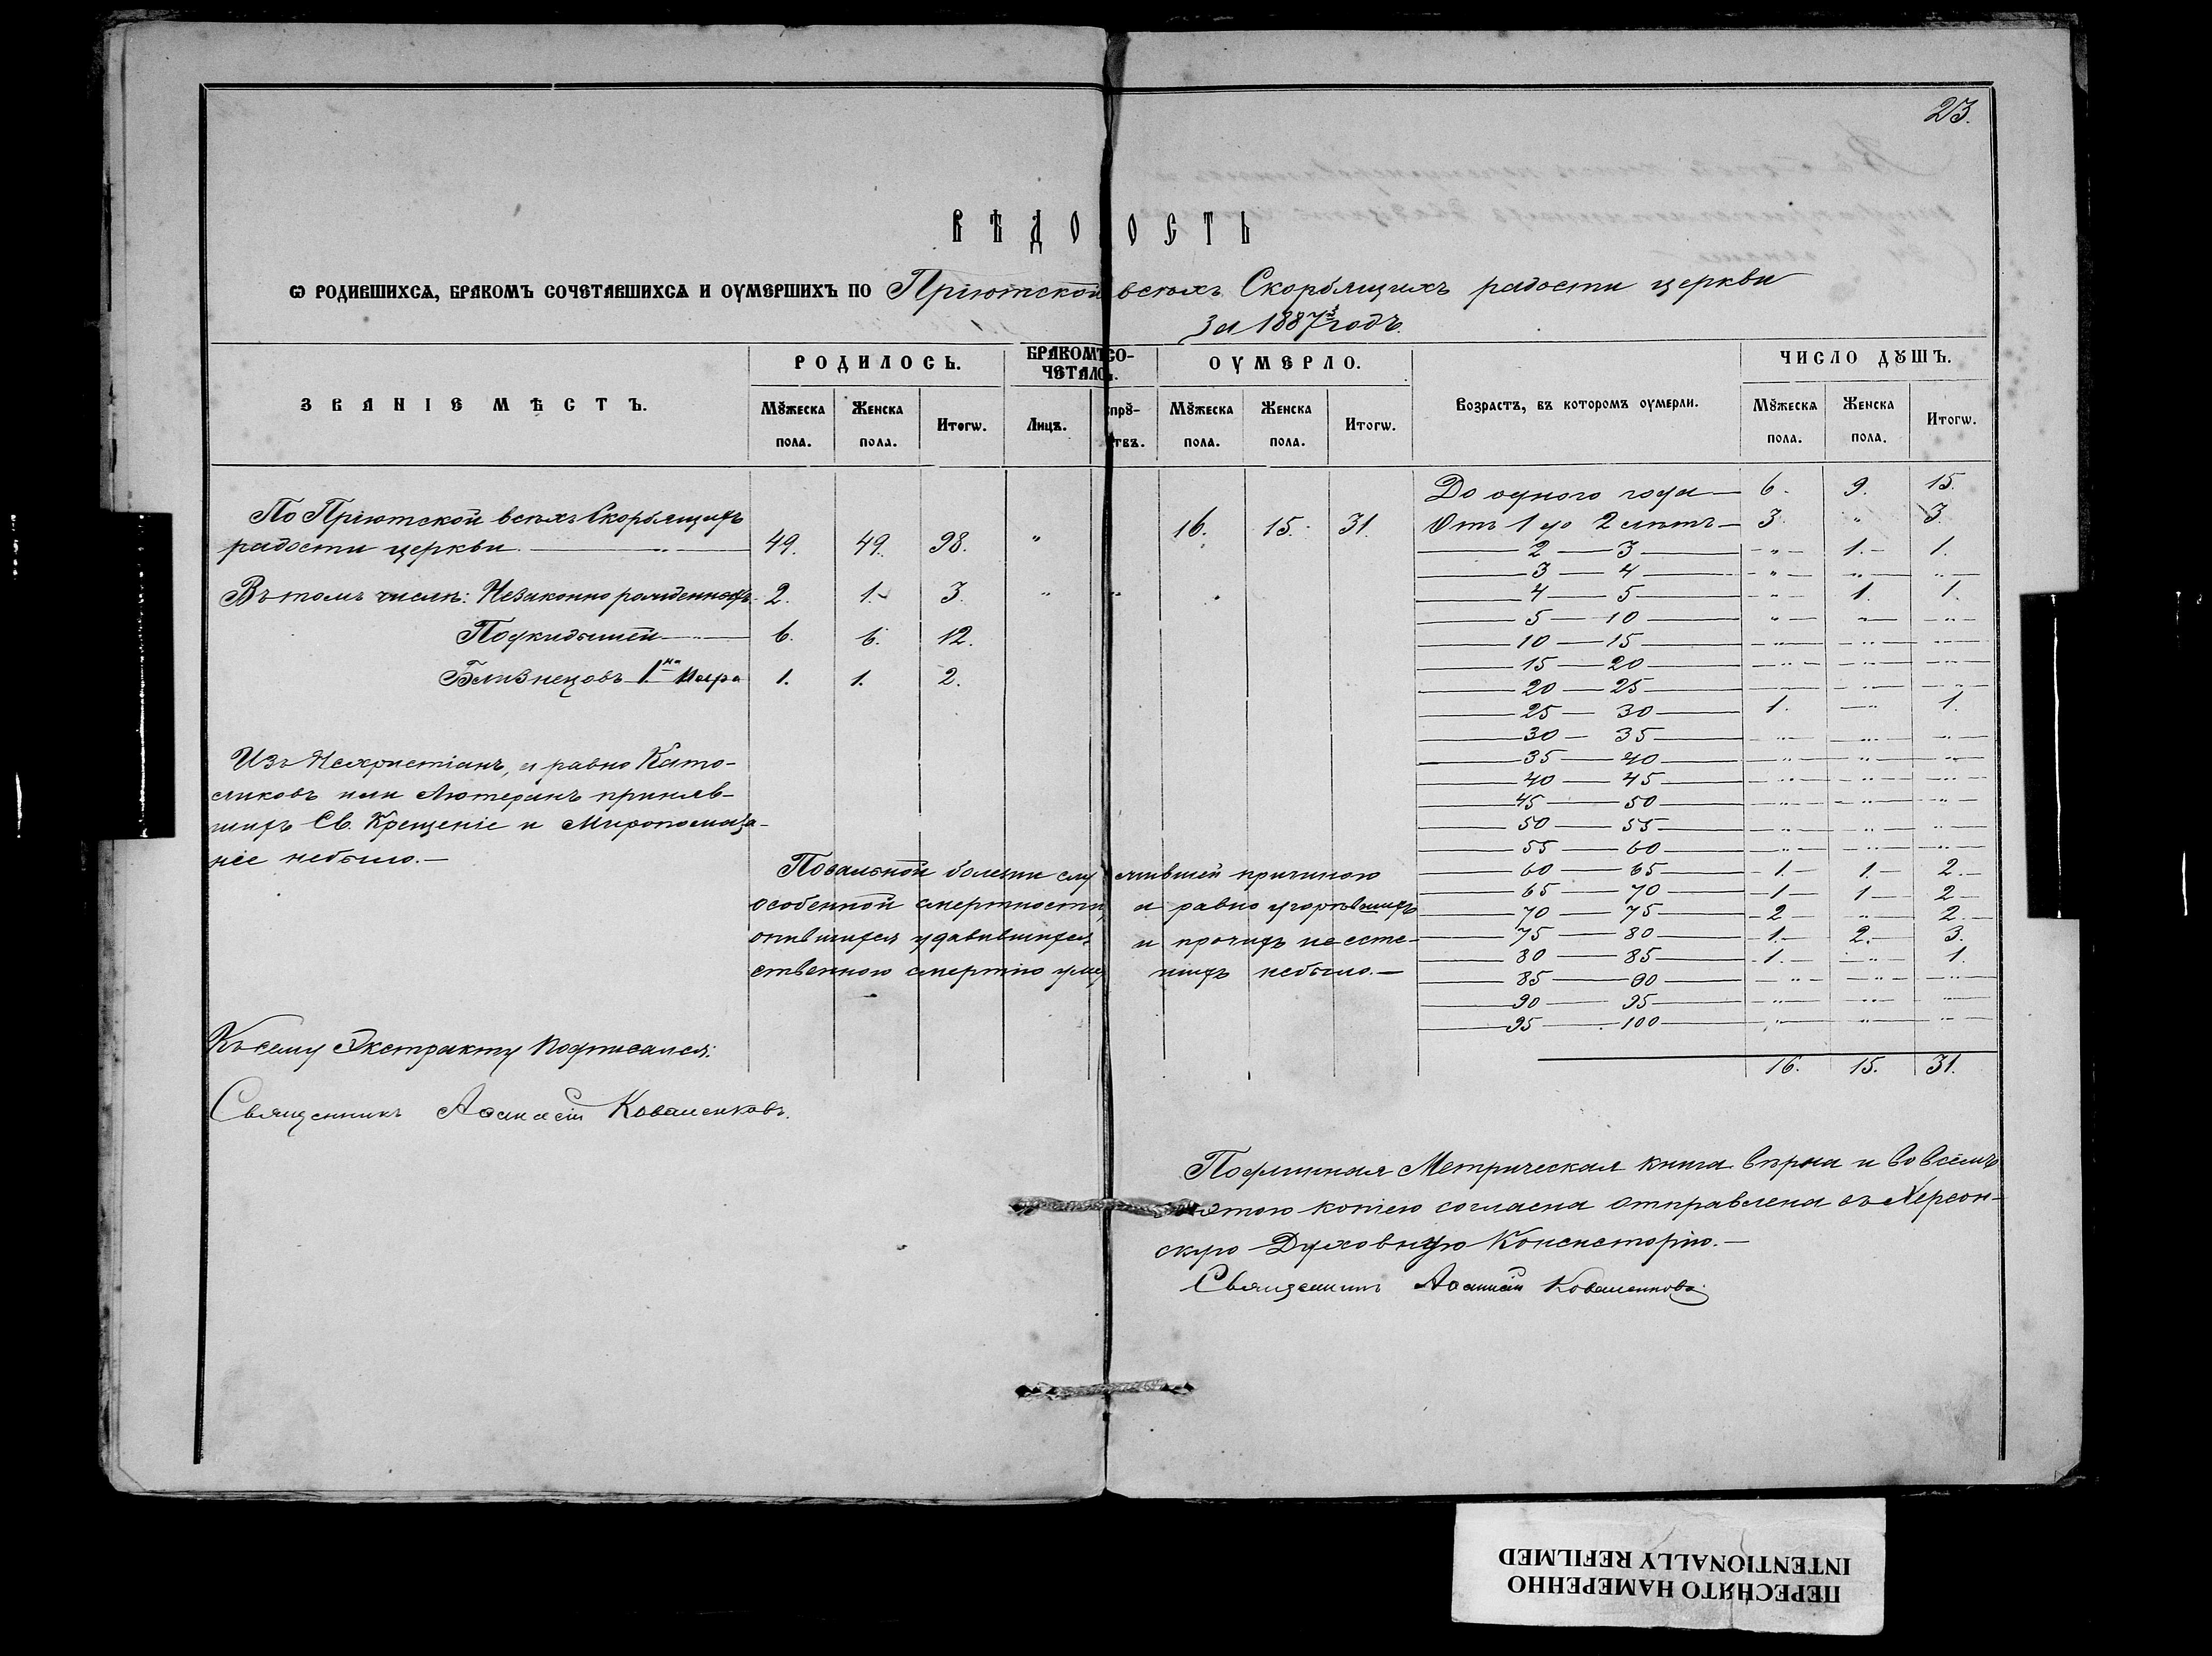 23.
ВѢДОМОСТЬ
Ѡ РОДИВШИХСѦ, БРАКОМЪ СОЧЕТАВШИХСѦ И ОУМЕРШИХЪ ПО Пріютской всѣхъ Скорбящихъ радости церкви
За 1887й годъ.
ЗВАНІЕ МѢСТЪ. РОДИЛОСЬ. БРАКОМЪ СО- ОУМЕРЛО. Возрастъ, въ которомъ оумерли. ЧИСЛО ДꙊШЪ.
ЧЕТАЛОСЬ.
Мꙋжеска Женска Итогѡ. Лицъ. Спрꙋ- Мꙋжеска Женска Итогѡ. Мꙋжеска Женска Итогѡ.
пола. пола. гствъ. пола. пола. пола. пола.
По Пріютской всѣхъ Скорбящихъ
радости церкви. — „ — 49. 49. 98. „ 16. 15. 31.
Въ томъ числѣ: Незаконнорожденныхъ. 2. 1. 3. „ „
Подкидышей — 6. 6. 12.
Близнецовъ 1.на пара 1. 1. 2.
Изъ Нехристіанъ, а равно Като-
ликовъ или Лютеранъ приняв-
шихъ Св. Крещеніе и Миропомаза-
ніе небыло. —
Повальной болезни служившей причиною
особенной смертности, а равно угорѣвшихъ
опившихся удавившихся и прочихъ неесте-
ственною смертію умершихъ небыло. —
До одного года — 6. 9. 15.
Отъ 1 до 2 лѣтъ — 3. „ 3.
2 — 3 — „ — 1. — 1.
3 — 4 — „ — „ — „
4 — 5 — „ — 1. 1.
5 — 10 — „ — „ — „ —
10 — 15 — „ — „ — „ —
15 — 20 — „ — „ — „ —
20 — 25 — „ — „ — „ —
25 — 30 — 1. — „ 1.
30 — 35 — „ — „ — „ —
35 — 40 — „ — „ — „ —
40 — 45 — „ — „ — „ —
45 — 50 — „ — „ — „ —
50 — 55 — „ — „ — „ —
55 — 60 — „ — „ — „ —
60 — 65 — 1. — 1. — 2. —
65 — 70 — 1 — 1 — 2 —
70 — 75 — 2 „ 2. —
75 — 80 — 1. — 2. — 3.
80 — 85 — 1. — „ 1.
85 — 90 — „ — „ — „ —
90 — 95 — „ — „ — „ —
95 — 100 — „ — „ — „ —
16. 15. 31.
Къ сему Экстракту подписался:
Священникъ Аѳанасій Коваленковъ.
Подлинная Метрическая книга вѣрна и во всемъ
съ этою копіею согласна отправлена въ Херсон-
скую Духовную Консисторію. —
Священникъ Аѳанасій Коваленковъ
ПЕРЕСНЯТО НАМЕРЕННО
INTENTIONALLY REFILMED